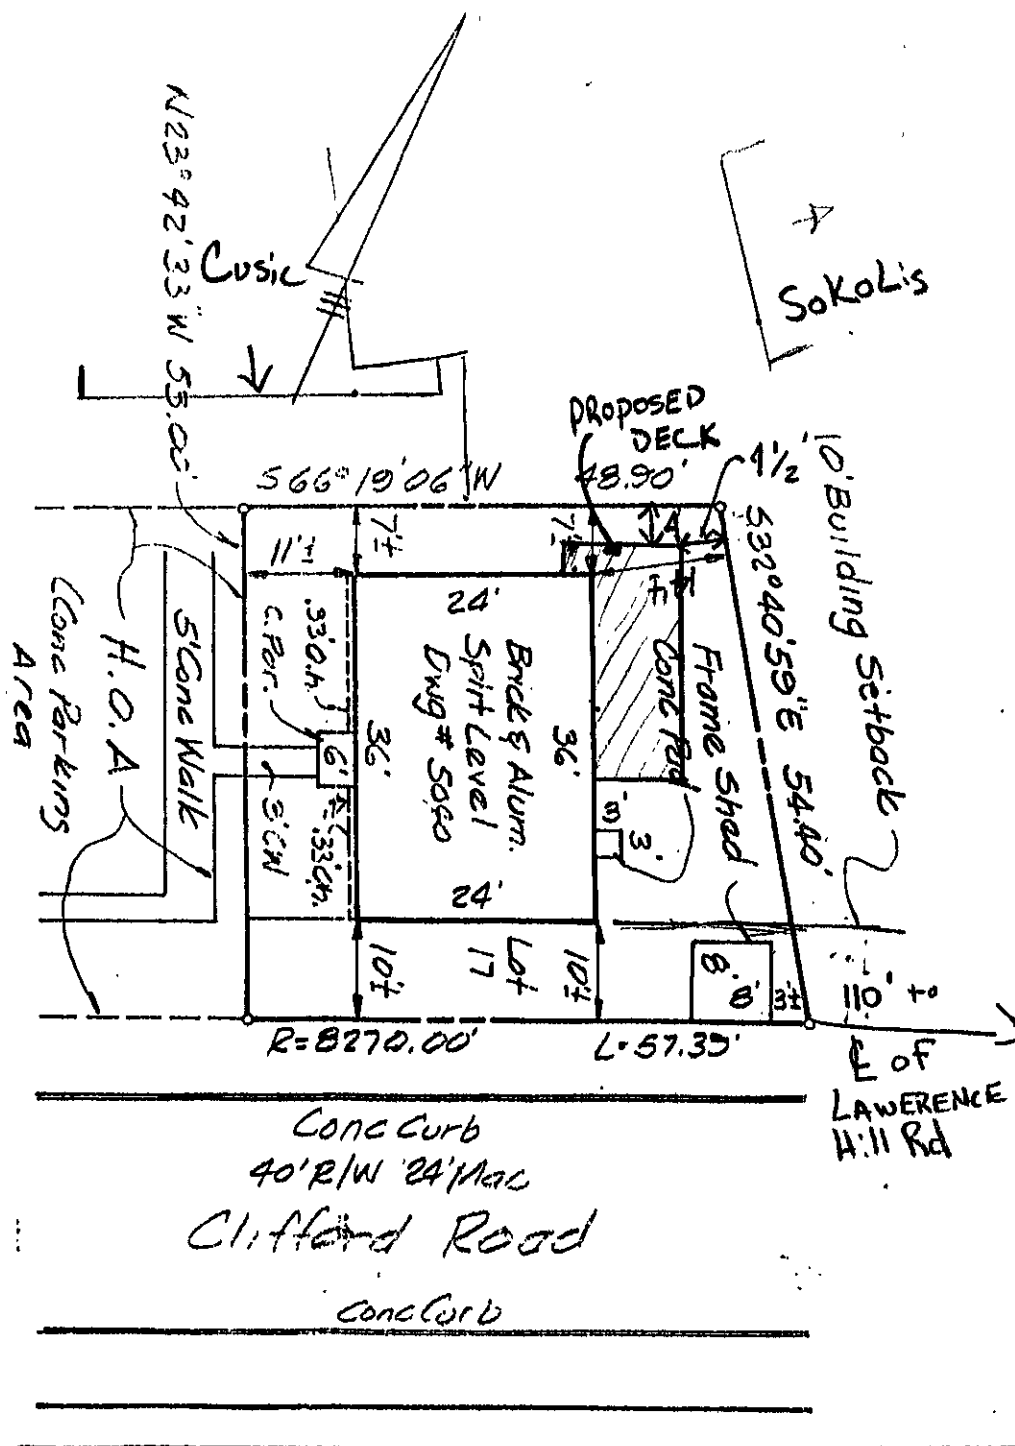 N23°42'33"W 55.00'
Cusic
SoKoLis
PROPOSED
DECK
4½'
10' Building Setback
S66°19'06"W 48.90'
S32°40'59"E 54.40'
7'±
7'±
4'
11'±
24'
.33 O.h.
C. Por.
6'
36'
Brick & Alum.
Split Level
Dwg # 5060
36'
Conc Pad
Frame Shed
3'
3'
3'CW
.33 O.h.
24'
5' Conc Walk
H.O.A
Conc Parking
Area
10'±
Lot
17
10'±
8'
8'
3'±
110' to
℄ of
LAWERENCE
Hill Rd
R=8270.00' L=57.39'
Conc Curb
40' R/W 24' Mac
Clifford Road
Conc Curb